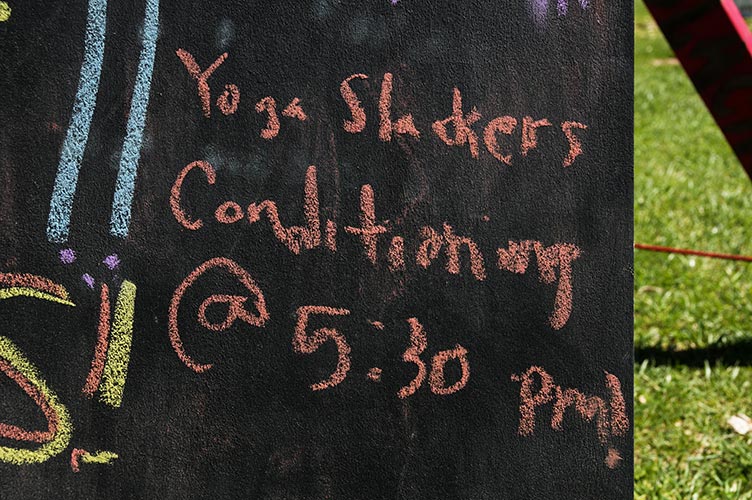 Yoga Slackers
Conditioning
@ 5:30 pm!
S!